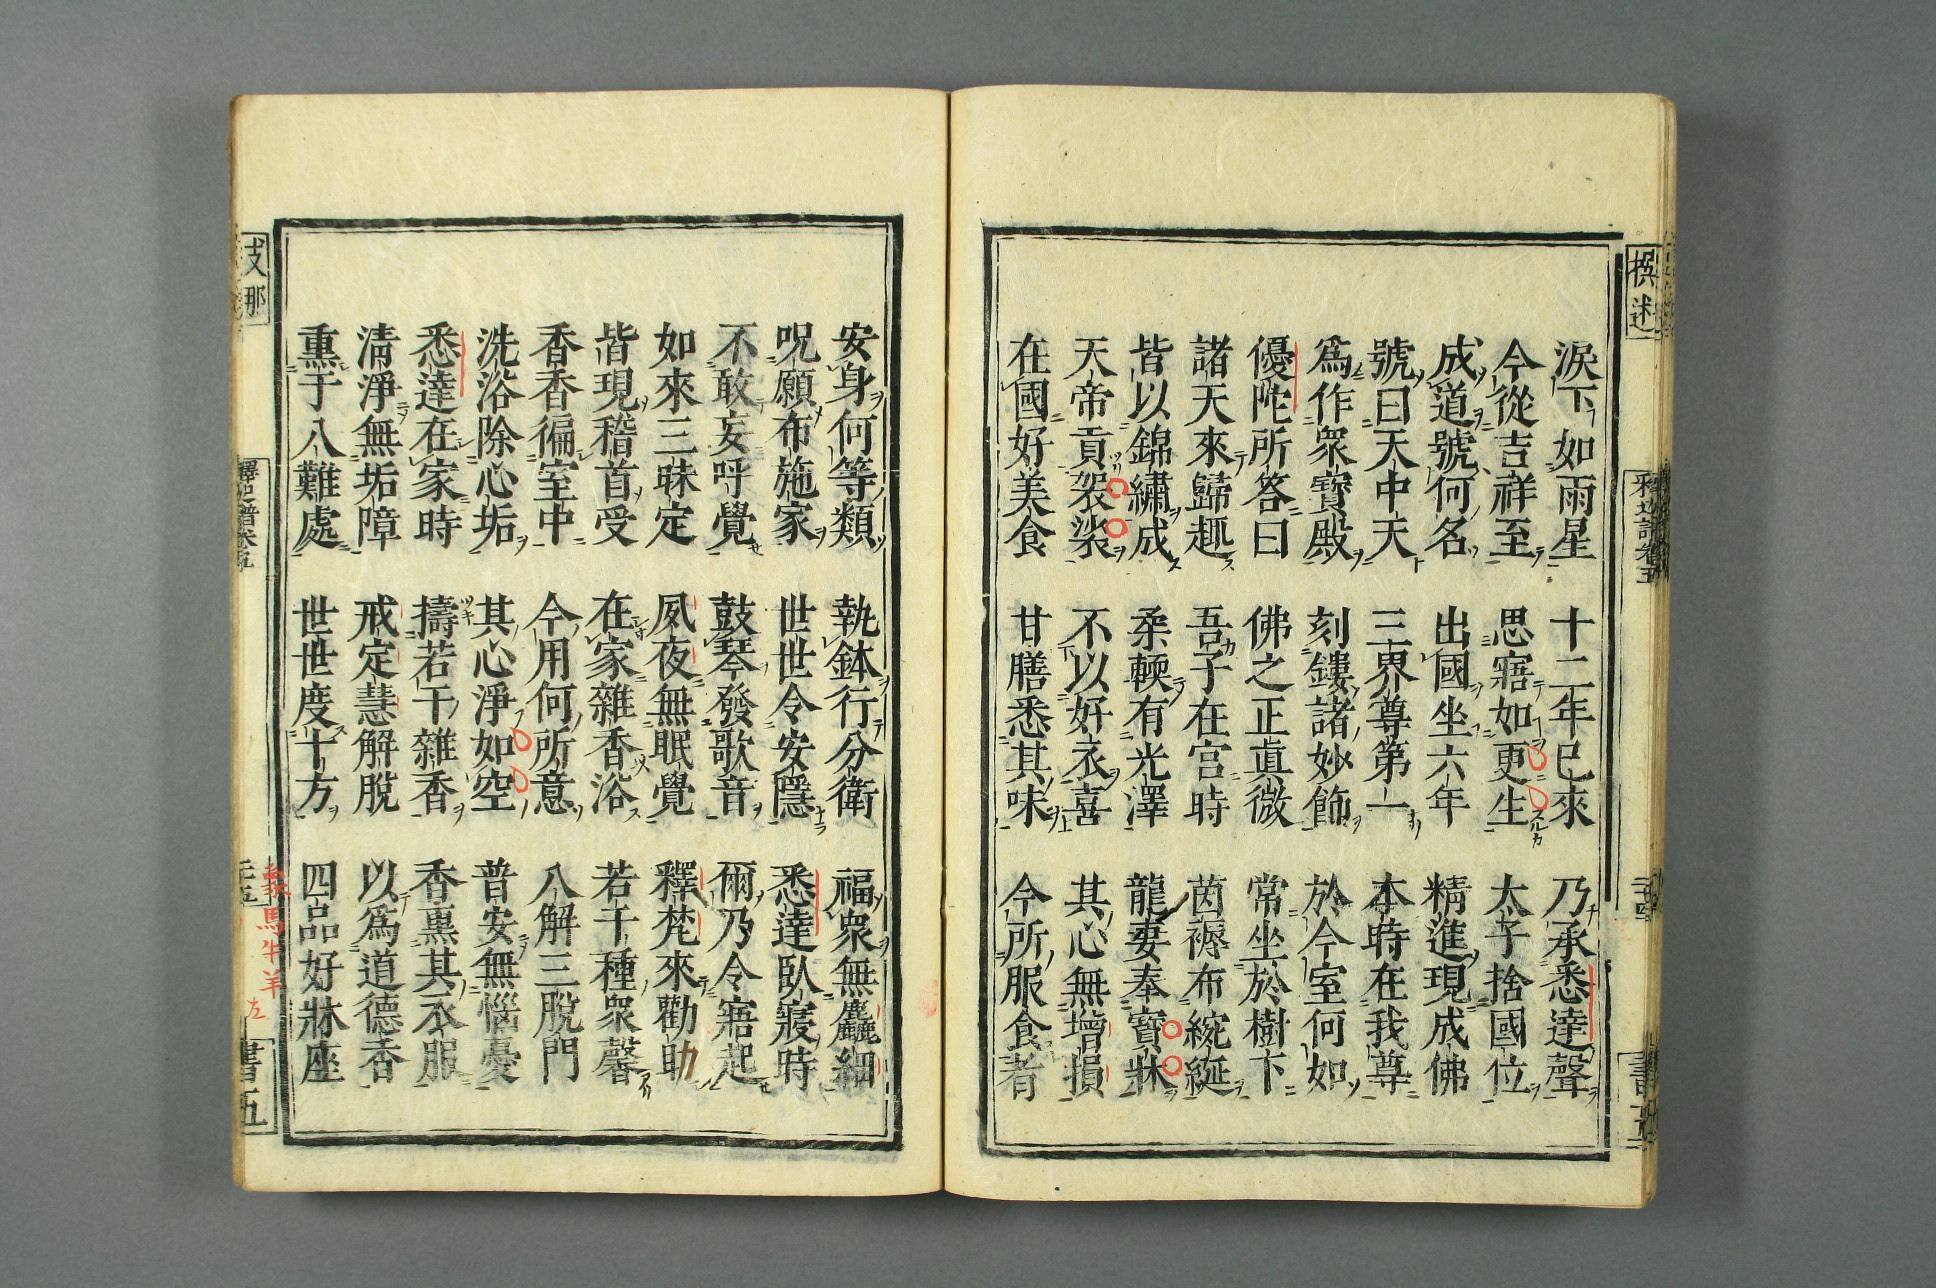 撰述
淚下如雨星　十二年已來　乃承悉達聲
今從吉祥至　思寤如更生　太子捨國位
成道號何名　出國坐六年　精進現成佛
號曰天中天　三界尊第一　本時在我尊
爲作衆寶殿　刻鏤諸妙飾　於今室何如
優陀所答曰　佛之正眞微　常坐於樹下
諸天來歸趣　吾子在宮時　茵褥布綩綖
皆以錦繡成　柔輭有光澤　龍妻奉寶牀
天帝貢袈裟　不以好衣喜　其心無增損
在國好美食　甘膳悉其味　今所服食者
安身何等類　執鉢行分衛　福衆無麤細
呪願布施家　世世令安隱　悉達臥寢時
不敢妄呼覺　鼓琴發歌音　爾乃令寤起
如來三昧定　夙夜無眠覺　釋梵來勸助
皆現稽首受　在家雜香浴　若干種衆馨
香香徧室中　今用何所意　八解三脫門
洗浴除心垢　其心淨如空　普安無惱憂
悉達在家時　擣若干雜香　香熏其衣服
清淨無垢障　戒定慧解脫　以爲道德香
熏于八難處　世世度十方　四品好牀座
支那
馬牛羊
左
書五